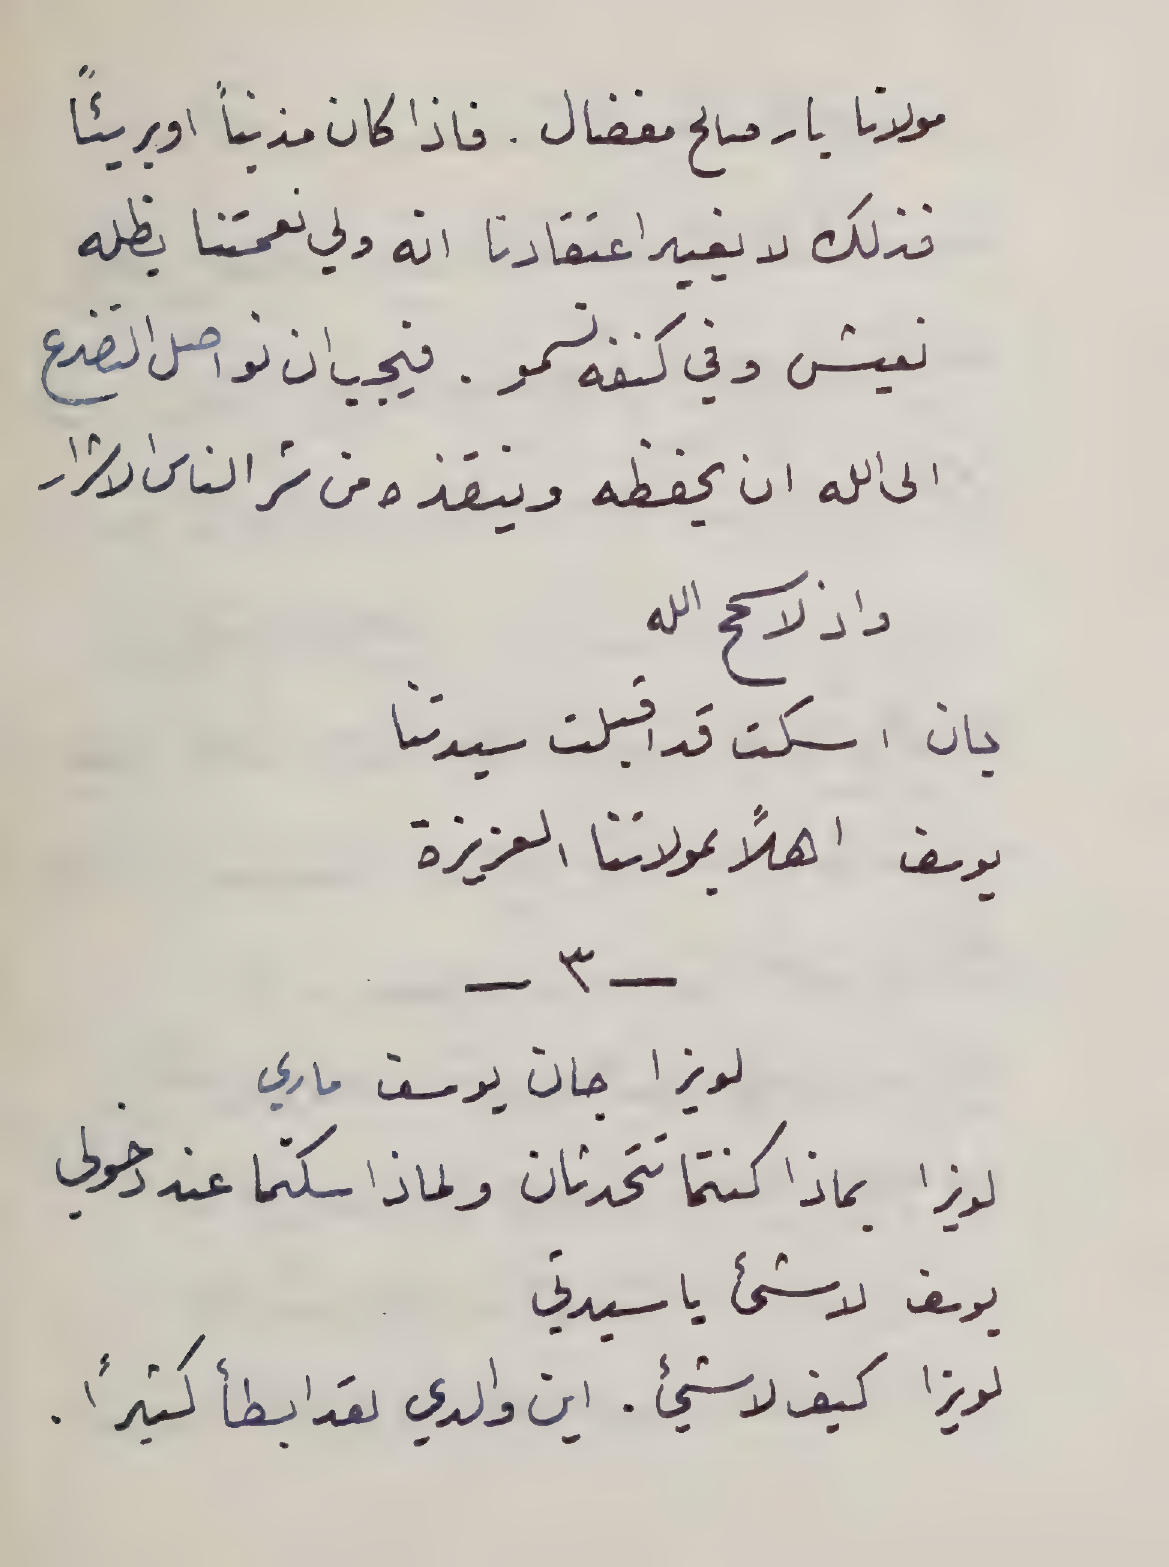 مولانا بار صالح مفضال . فاذا كان مذنباً او بريئاً
فذلك لا يغير اعتقادنا انه ولي نعمتنا بظله
نعيش وفي كنفه نسمو . فيجب ان نواصل التضرع
الى الله ان يحفظه وينقذه من شر الناس الاشرار
واذ لا سمح الله
جان اسكت قد اقبلت سيدتنا
يوسف اهلاً بمولاتنا العزيزة
— ٣ —
لويزا جان يوسف ماري
لويزا بماذا كنتما تتحدثان ولماذا سكتما عند دخولي
يوسف لا شئ يا سيدتي
لويزا كيف لا شئ . اين والدي لقد ابطأ كثيراً .